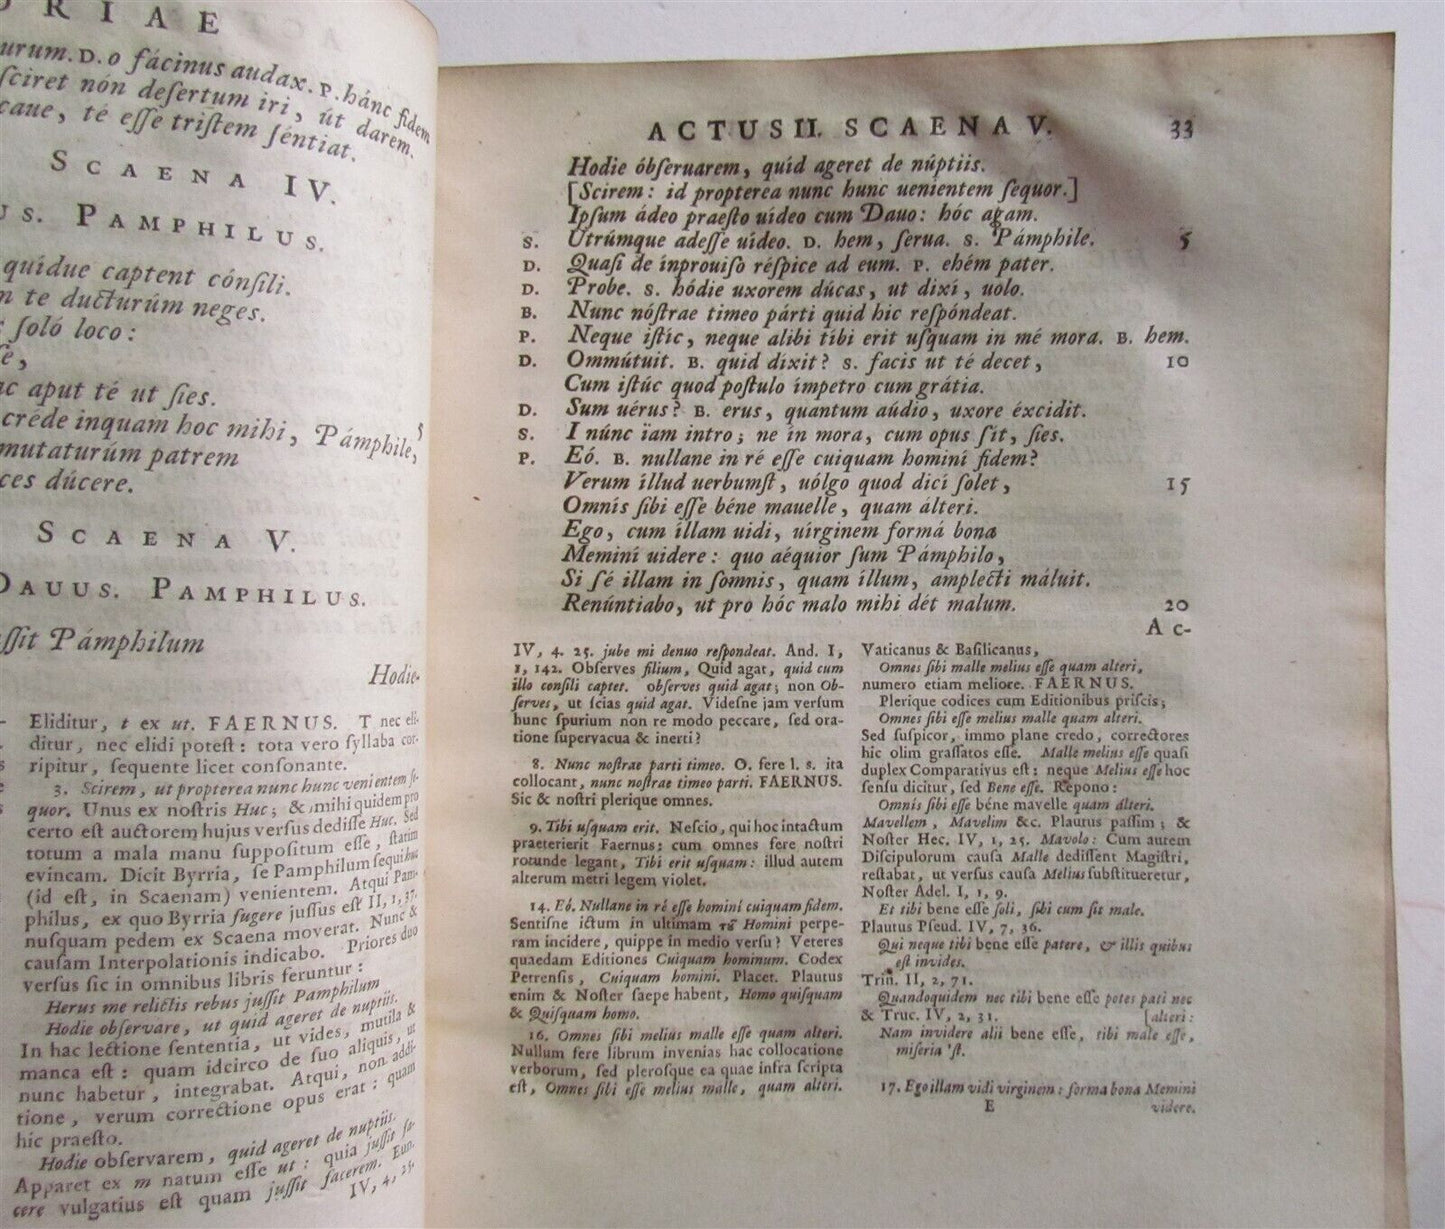 RIAE
urum. D. o fácinus audax. P. hánc fidem
sciret nón desertum iri, út darem.
caue, té esse tristem séntiat.
SCAENA IV.
US. PAMPHILUS.
quídue captent cónsili.
te ducturúm neges.
soló loco:
aput té ut sies.
créde inquam hoc mihi, Pámphile, 5
mutaturúm patrem
ces dúcere.
SCAENA V.
DAUUS. PAMPHILUS.
ussit Pámphilum
Hodie-
Eliditur, t ex ut. FAERNUS. T nec eli-
ditur, nec elidi potest: tota vero syllaba cor-
ripitur, sequente licet consonante.
3. Scirem, ut propterea nunc hunc venientem se-
quor. Unus ex nostris Huc; & mihi quidem pro
certo est auctorem hujus versus dedisse Huc. Sed
totum a mala manu suppositum esse, statim
evincam. Dicit Byrria, se Pamphilum sequi huc
(id est, in Scaenam) venientem. Atqui Pam-
philus, ex quo Byrria fugere jussus est II, 1, 37.
nusquam pedem ex Scaena moverat. Nunc &
causam Interpolationis indicabo. Priores duo
versus sic in omnibus libris feruntur:
Herus me relictis rebus jussit Pamphilum
Hodie observare, ut quid ageret de nuptiis.
In hac lectione sententia, ut vides, mutila &
manca est: quam idcirco de suo aliquis, ut
nunc habetur, integrabat. Atqui, non addi-
tione, verum correctione opus erat: quam
hic praesto.
Hodie observarem, quid ageret de nuptiis.
Apparet ex m natum esse ut: quia jussit fa-
cere vulgatius est quam jussit facerem. Eun.
IV, 4, 25.
ACTUS II. SCAENA V. 33
Hodie óbseruarem, quíd ageret de núptiis.
[Scirem: id propterea nunc hunc uenientem sequor.]
Ipsum ádeo praesto uídeo cum Dauo: hóc agam.
S. Utrúmque adesse uídeo. D. hem, serua. S. Pámphile. 5
D. Quasi de ínprouiso réspice ad eum. P. ehém pater.
D. Probe. S. hódie uxorem dúcas, ut dixí, uolo.
B. Nunc nóstrae timeo párti quid hic respóndeat.
P. Neque istíc, neque alibi tíbi erit usquam in mé mora. B. hem.
D. Ommútuit. B. quid dixit? S. facis ut té decet, 10
Cum istúc quod postulo ímpetro cum grátia.
D. Sum uérus? B. erus, quantum aúdio, uxore éxcidit.
S. I núnc ïam intro; ne ín mora, cum opus sít, sies.
P. Eó. B. nullane in ré esse cuiquam hominí fidem?
Verum íllud uerbumst, uólgo quod dicí solet, 15
Omnís sibi esse béne mauelle, quam álteri.
Ego, cum íllam uidi, uírginem formá bona
Meminí uidere: quo aéquior sum Pámphilo,
Si sé illam in somnis, quam íllum, amplecti máluit.
Renúntiabo, ut pro hóc malo mihi dét malum. 20
A c-
IV, 4. 25. jube mi denuo respondeat. And. I,
1, 142. Observes filium, Quid agat, quid cum
illo consili captet. observes quid agat; non Ob-
serves, ut scias quid agat. Videsne jam versum
hunc spurium non re modo peccare, sed ora-
tione supervacua & inerti?
8. Nunc nostrae parti timeo. O. fere l. s. ita
collocant, nunc nostrae timeo parti. FAERNUS.
Sic & nostri plerique omnes.
9. Tibi usquam erit. Nescio, qui hoc intactum
praeterierit Faernus: cum omnes fere nostri
rotunde legant, Tibi erit usquam: illud autem
alterum metri legem violet.
14. Eó. Nullane in ré esse homini cuiquam fidem.
Sentisne ictum in ultimam τοῦ Homini perpe-
ram incidere, quippe in medio versu? Veteres
quaedam Editiones Cuiquam hominum. Codex
Petrensis, Cuiquam homini. Placet. Plautus
enim & Noster saepe habent, Homo quisquam
& Quisquam homo.
16. Omnes sibi melius malle esse quam alteri.
Nullum fere librum invenias hac collocatione
verborum, sed plerosque ea quae infra scripta
est, Omnes sibi esse melius malle, quam alteri.
Vaticanus & Basilicanus,
Omnes sibi malle melius esse quam alteri,
numero etiam meliore. FAERNUS.
Plerique codices cum Editionibus priscis;
Omnes sibi esse melius malle quam alteri.
Sed suspicor, immo plane credo, correctores
hic olim grassatos esse. Malle melius esse quasi
duplex Comparativus est: neque Melius esse hoc
sensu dicitur, sed Bene esse. Repono:
Omnís sibi esse béne mavelle quam álteri.
Mavellem, Mavelim &c. Plautus passim; &
Noster Hec. IV, 1, 25. Mavolo: Cum autem
Discipulorum causa Malle dedissent Magistri,
restabat, ut versus causa Melius substitueretur,
Noster Adel. I, 1, 9.
Et tibi bene esse soli, sibi cum sit male.
Plautus Pseud. IV, 7, 36.
Qui neque tibi bene esse patere, & illis quibus
est invides.
Trin. II, 2, 71.
Quandoquidem nec tibi bene esse potes pati nec
& Truc. IV, 2, 31. [alteri:
Nam invidere alii bene esse, tibi male esse,
miseria 'st.
17. Ego illam vidi virginem: forma bona Memini
E videre.